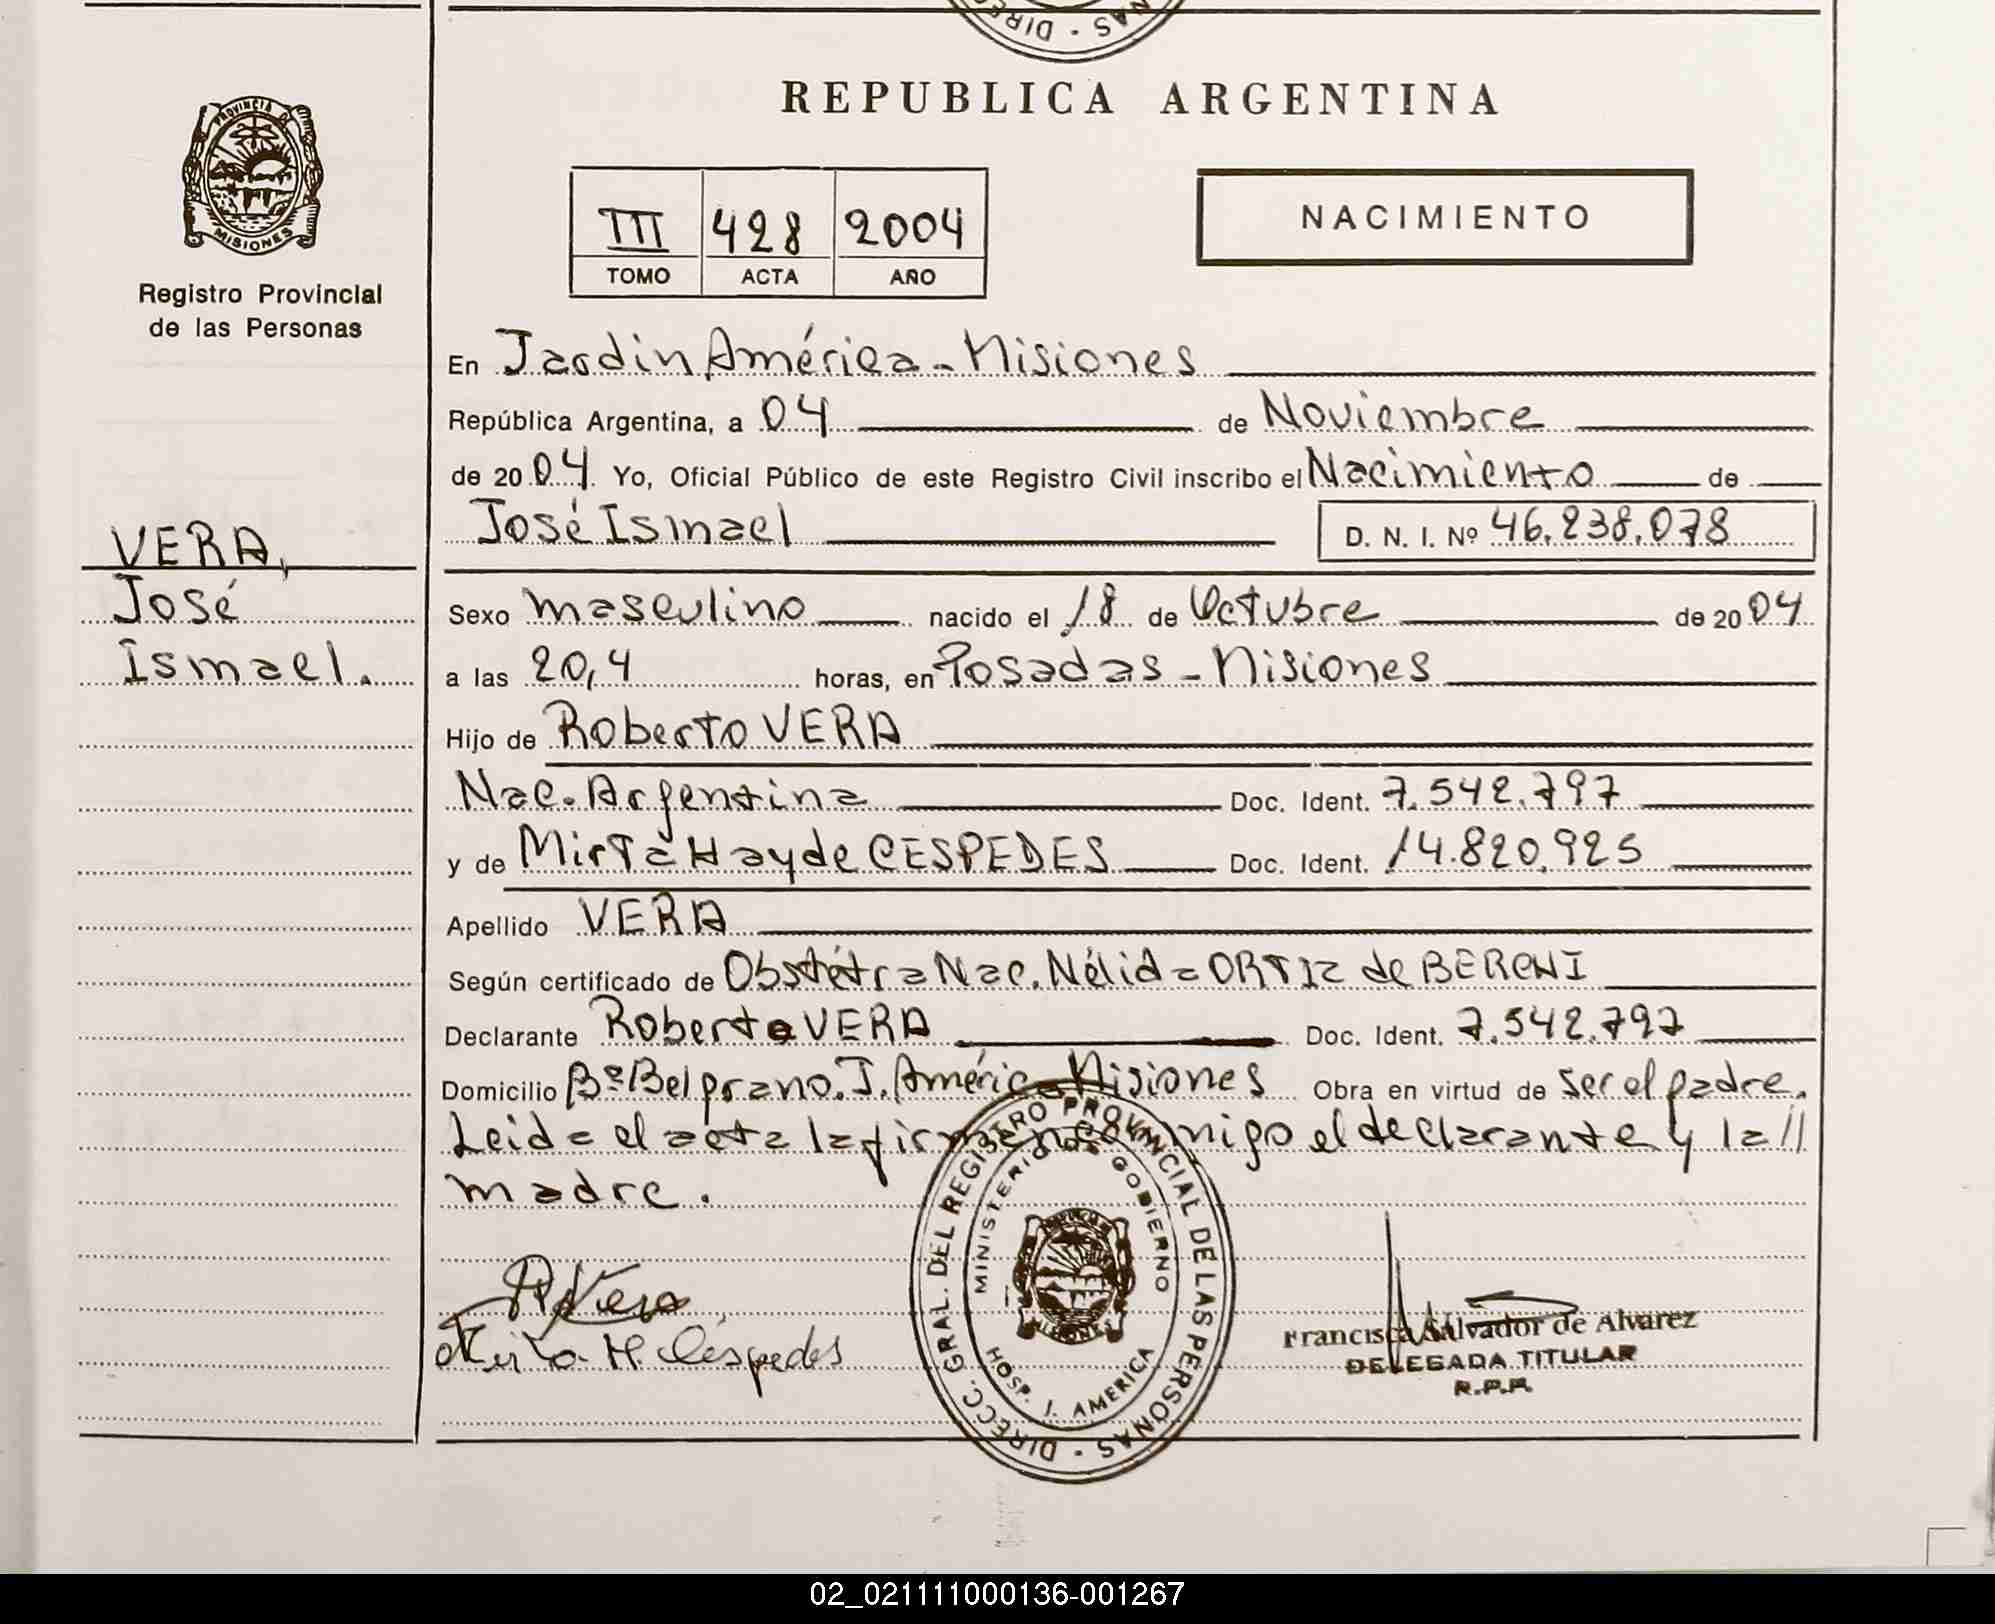 DIRE NAS -
REPUBLICA ARGENTINA
PROVINCIA DE
MISIONES
Registro Provincial
de las Personas
III 428 2004
TOMO ACTA AÑO
NACIMIENTO
En Jardin América - Misiones
República Argentina, a 04 de Noviembre
de 2004. Yo, Oficial Público de este Registro Civil inscribo el Nacimiento de
José Ismael D. N. I. Nº 46.238.078
VERA,
José
Ismael.
Sexo masculino nacido el 18 de Octubre de 2004
a las 20,4 horas, en Posadas - Misiones
Hijo de Roberto VERA
Nac. Argentina Doc. Ident. 7.542.797
y de Mirta Hayde CESPEDES Doc. Ident. 14.820.925
Apellido VERA
Según certificado de Obstétra Nac. Nélida ORTIZ de
Declarante Roberto VERA Doc. Ident. 7.542.797
Domicilio Bº Belgrano. J. América Misiones Obra en virtud de ser el padre.
Leida el acta la firman conmigo el declarante y la //
madre.
DIRECC. GRAL. DEL REGISTRO PROVINCIAL DE LAS PERSONAS -
MINISTERIO DE GOBIERNO
HOSP. J. AMERICA
MISIONES
R Vera
Mirta H. Céspedes
Francisca Salvador de Alvarez
DELEGADA TITULAR
R.P.P.
02_021111000136-001267